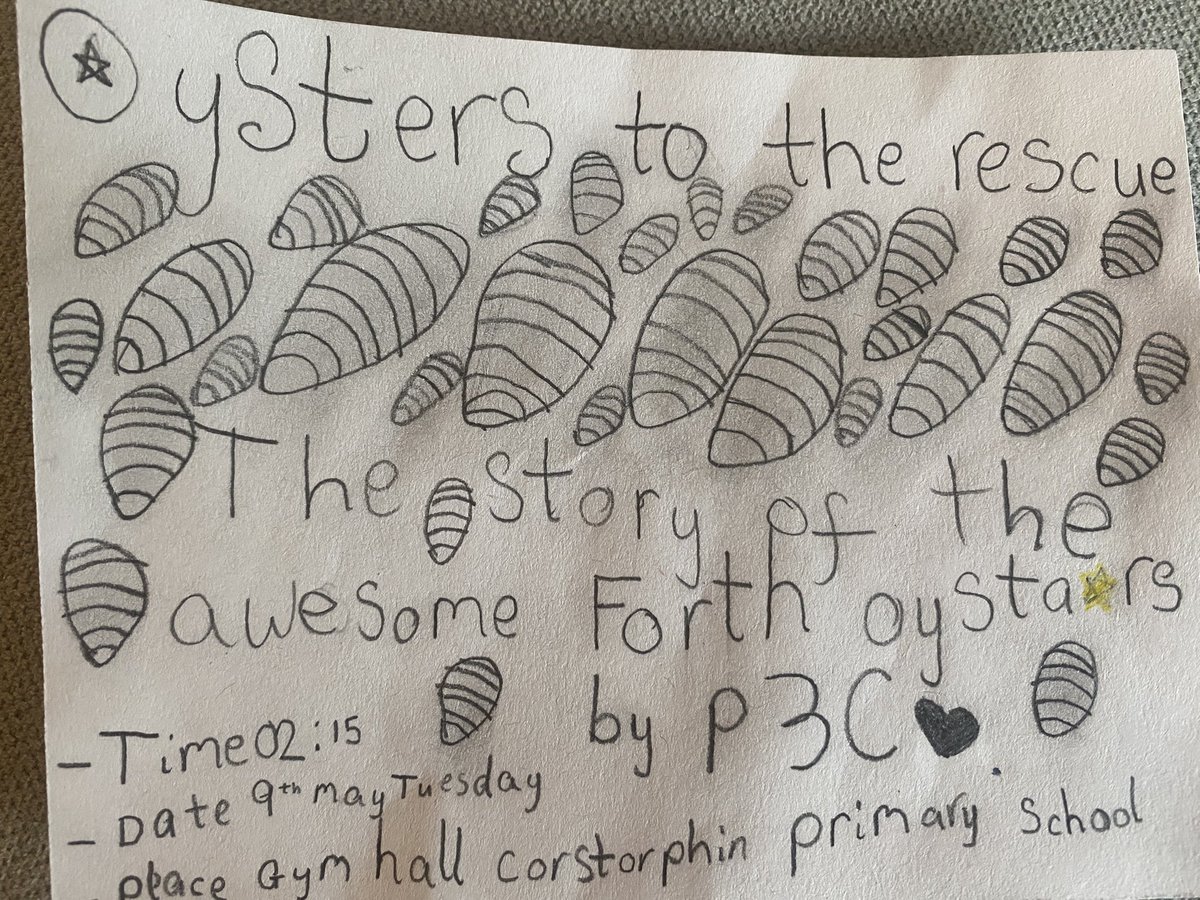 Oysters to the rescue
The story of the
awesome Forth oystars
by P3C
- Time 02:15
- Date 9th may Tuesday
- place Gym hall corstorphin primary school